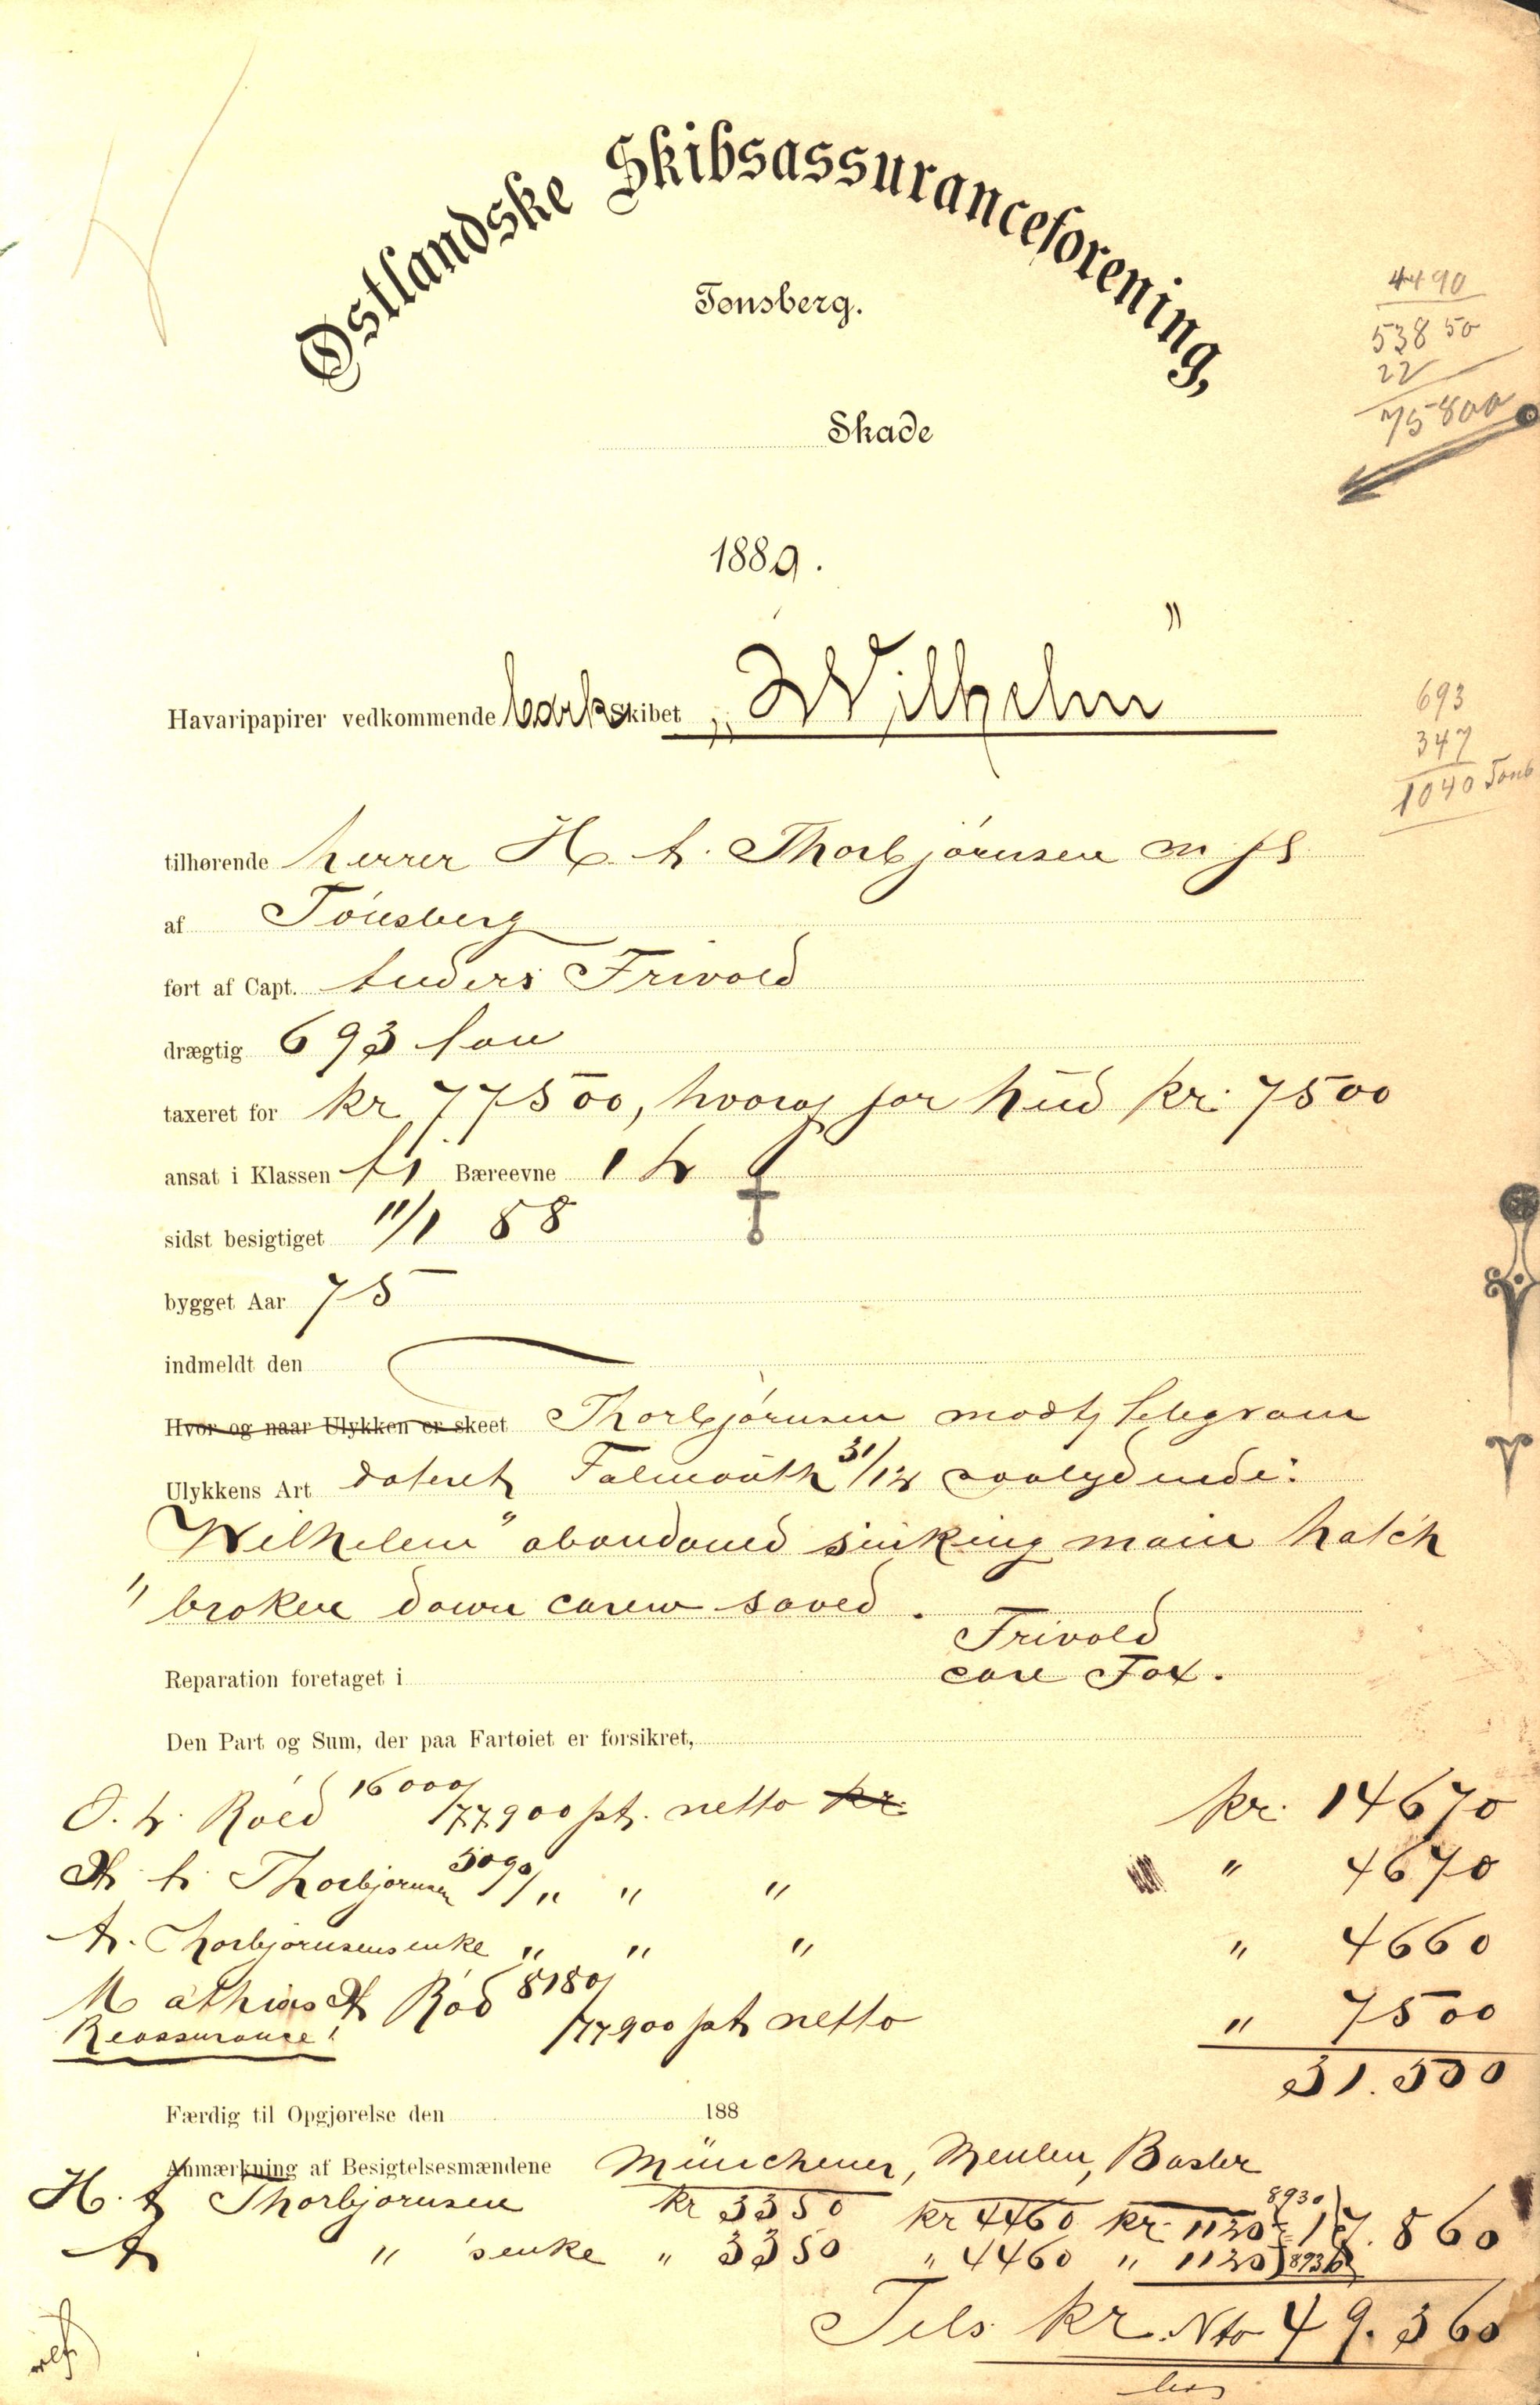 Østlandske Skibsassuranceforening,
Tønsberg.
4490
538 50
22
75800
Skade
1889.
Havaripapirer vedkommende bark skibet „Wilhelm"
693
347
1040 Tons
tilhørende herrer H. A. Thorbjørnsen m fl
af Tønsberg
ført af Capt. Anders Frivold
drægtig 693 ton
taxeret for kr 77500, hvoraf for hud kr. 7500
ansat i Klassen A1 Bæreevne
sidst besigtiget 11/1 88
bygget Aar 75
indmeldt den
Hvor og naar Ulykken er skeet Thorbjørnsen modtg telegram
Ulykkens Art dateret Falmouth 31/12 saalydende:
Wilhelm" abandoned sinking main hatch
" broken down crew saved.
Frivold
Reparation foretaget i care Fox.
Den Part og Sum, der paa Fartøiet er forsikret,
O. A. Røed 16000/77900 pt. netto kr. kr. 14670
H. A. Thorbjørnsen 5090/" " " " 4670
A. Thorbjørnsens enke " " " " 4660
Mathias A Rød 8180/77900 pt netto " 7500
Reassurance! 31.500
Færdig til Opgjørelse den 188
Anmærkning af Besigtelsesmændene Münchener, Basler
H. A Thorbjørnsen kr 3350 kr 4460 kr. 1120 8930 = 17.860
A " s enke " 3350 " 4460 " 1120 8930
Tils kr. Nto 49.360